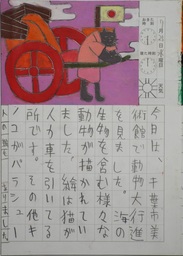 今日は、千葉市美
術館で動物大行進
を見ました。海の
生物を含む様々な
動物が描かれてい
ました。絵は猫が
人力車を引いてる
所です。その他キ
ノコがパラシュー